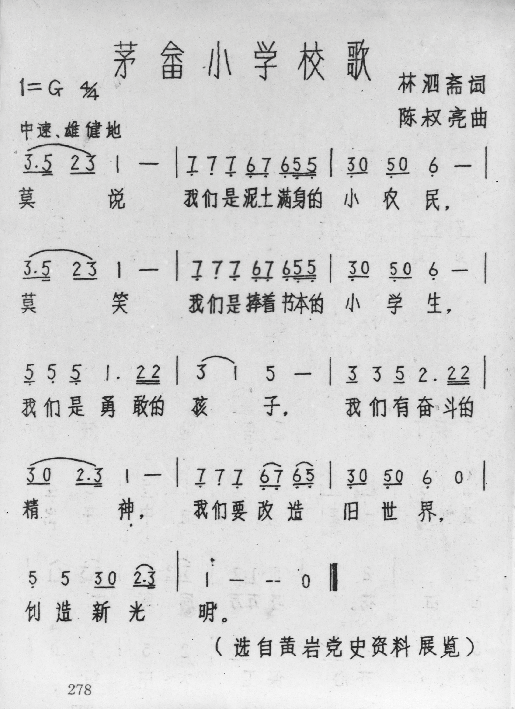 茅畲小学校歌
1=G 4/4
林泗斋词
陈叔亮曲
中速、雄健地
3.5 23 1 — | 777 67 655 | 30 50 6 — |
莫 说 我们是泥土满身的 小 农 民,
3.5 23 1 — | 777 67 655 | 30 50 6 — |
莫 笑 我们是捧着书本的 小 学 生,
5 5 5 1. 22 | 3 1 5 — | 3 3 5 2. 22 |
我们是勇敢的 孩 子, 我们有奋斗的
30 2.3 1 — | 777 67 65 | 30 50 6 0 |
精 神, 我们要改造 旧 世 界,
5 5 30 2.3 | 1 — -- 0 ‖
创造新光 明。
(选自黄岩党史资料展览)
278